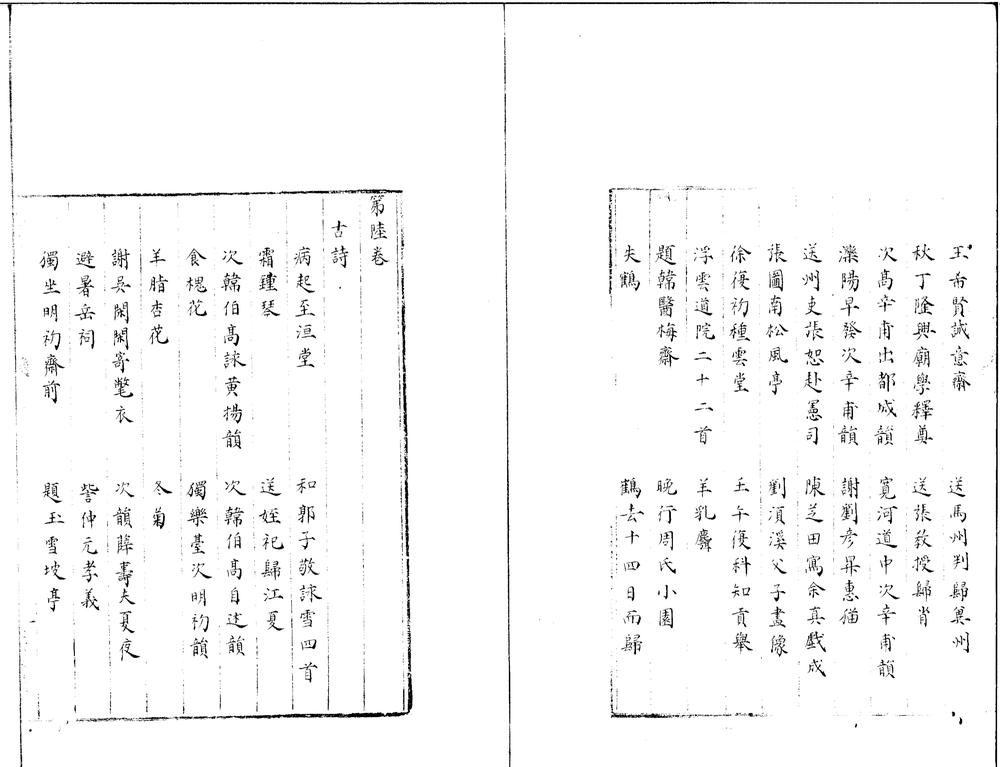 王希賢誠意齋 送馬州判歸冀州
秋丁隆興廟學釋奠 送張教授歸肖
次高辛甫出都城韻 寬河道中次辛甫韻
灤陽早發次辛甫韻 謝劉彥昇惠猫
送州吏張恕赴憲司 陳芝田寫余真戲成
張圖南松風亭 劉湏溪父子畫像
徐復初種雲堂 壬午復科知貢舉
浮雲道院二十二首 羊乳麝
題韓醫梅齋 晚行周氏小園
失鶴 鶴去十四日而歸
第陸卷
古詩
病起至洹堂 和郭子敬詠雪四首
霜鍾琴 送姪祀歸江夏
次韓伯高詠黄楊韻 次韓伯高自述韻
食槐花 獨樂臺次明初韻
羊脂杏花 冬菊
謝吳閑閑寄氅衣 次韻薛壽夫夏夜
避暑岳祠 訾仲元孝義
獨坐明初齋前 題玉雪坡亭